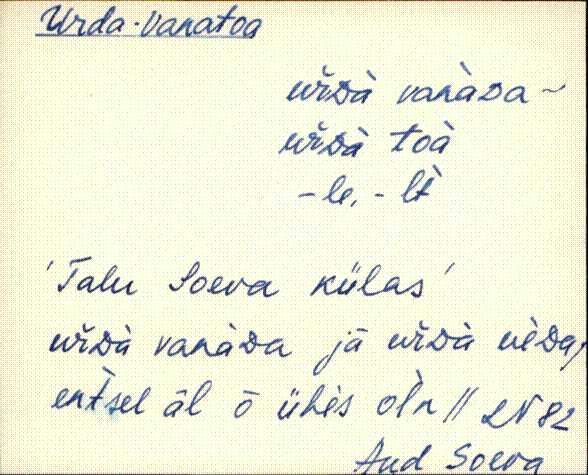 Urda-vanatoa
urdà vanàDa ~
urdà toà
-le, -lt
'Talu Soeva külas'
urdà vanàDa jā urdà
äl ō ühès oln // LN 82
And Soeva